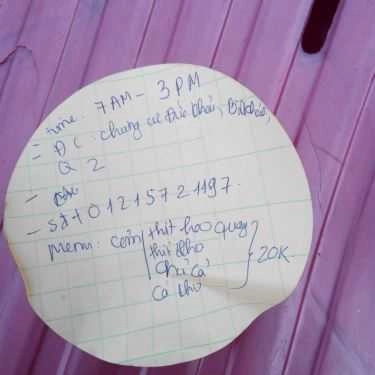 - time: 7 AM - 3 PM
- ĐC: chung cư Đức Khải, Bình Khánh,
Q 2
- SĐT 01215721197.
Menu: cơm thịt heo quay
thịt kho
chả cá
cá kho
20K